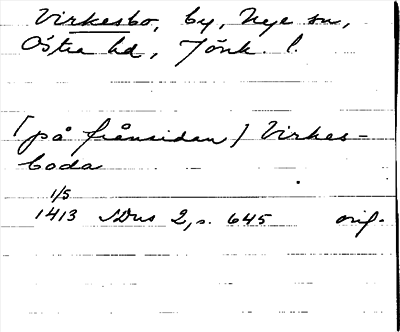 Virkesbo, by, Nye sn,
Östra hd, Jönk. l.
[på frånsidan] Virkes-
boda
1/5
1413 SDns 2, s. 645 orig.